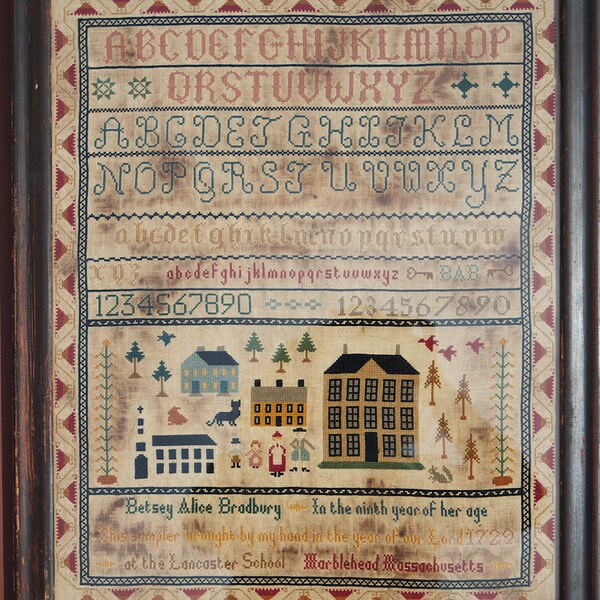 ABCDEFGHIJKLMNOP
QRSTUVWXYZ
ABCDEFGHIJKLM
NOPQRSTUVWXYZ
abcdefghiklmnopqrstuvw
xyz abcdefghijklmnopqrstuvwxyz BAB
1234567890 1234567890
Betsey Alice Bradbury In the ninth year of her age
This sampler wrought by my hand in the year of our Lord 1729
at the Lancaster School Marblehead Massachusetts